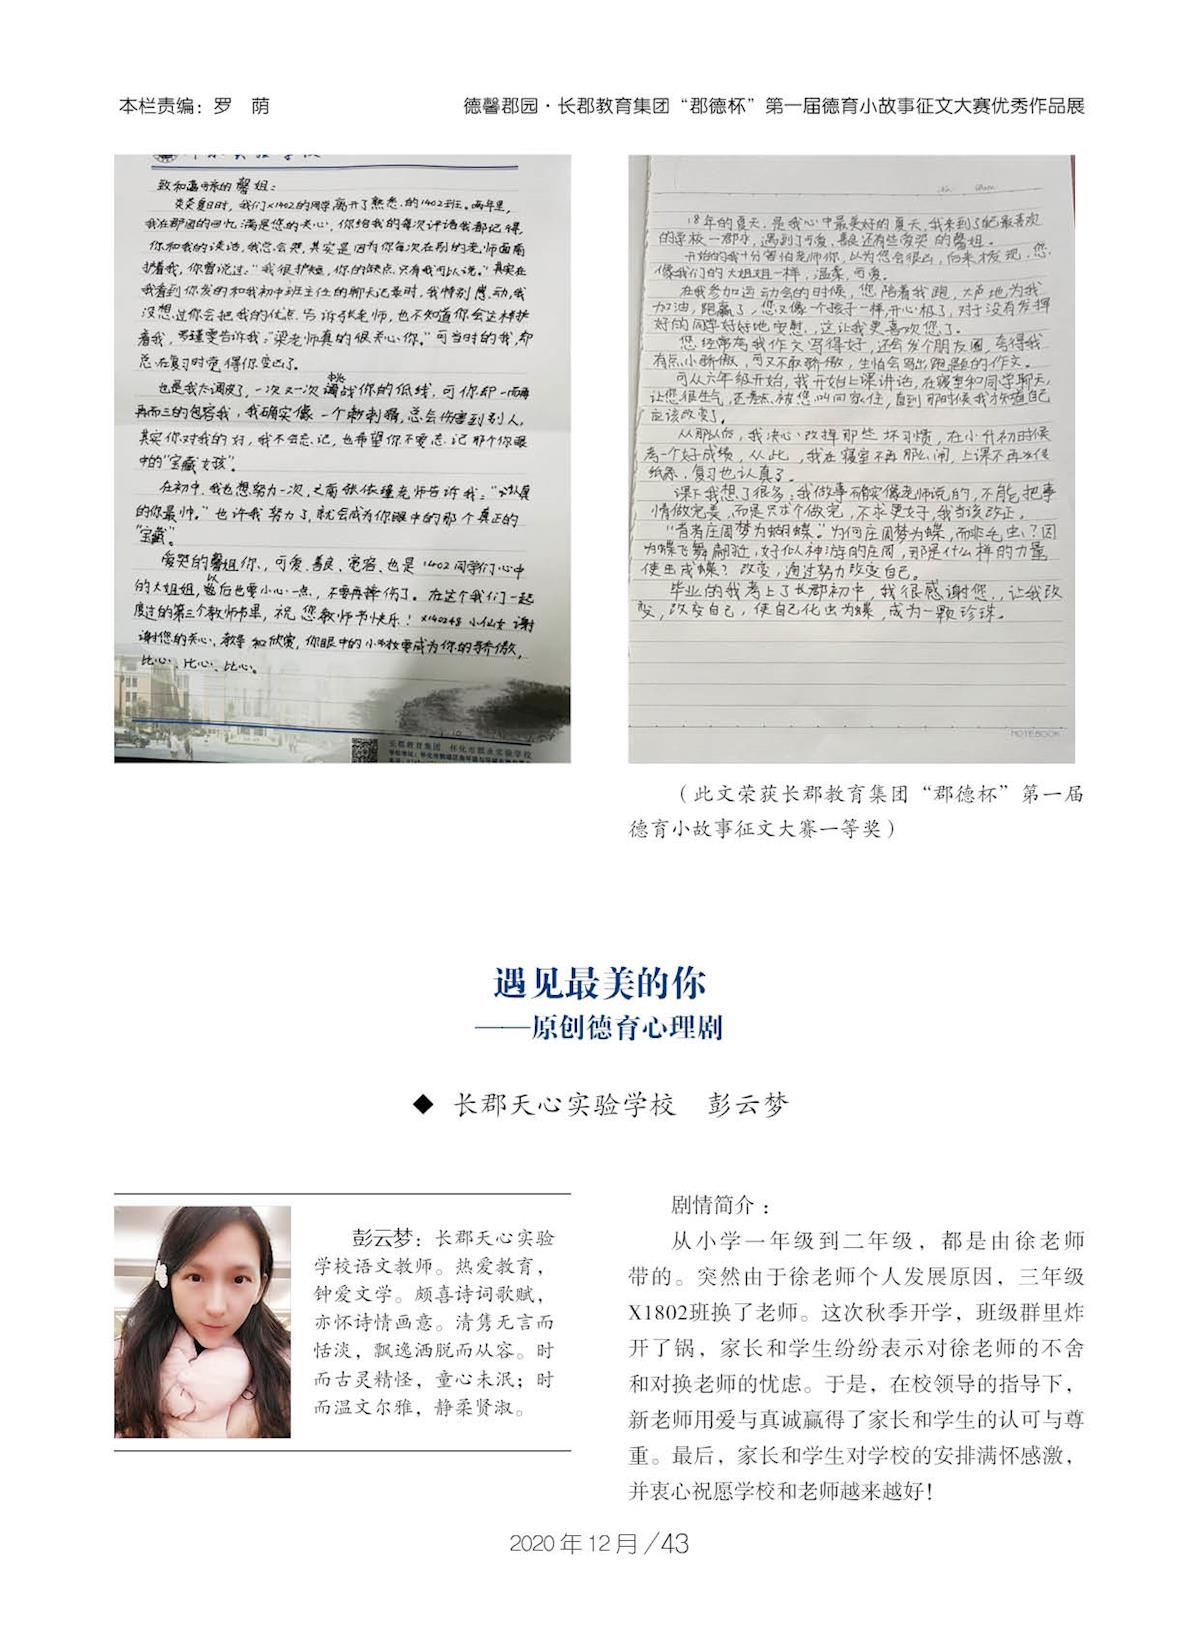 本栏责编：罗　荫
德馨郡园·长郡教育集团“郡德杯”第一届德育小故事征文大赛优秀作品展
致和蔼可亲的馨姐：
炎炎夏日时，我们x1402的同学离开了熟悉的1402班。两年里，
我在郡园的回忆满是您的关心，你给我的每次评语我都记得，
你和我的谈话，我总会哭，其实是因为你每次在别的老师面前
护着我，你曾说过：“我很护短，你的缺点只有我可以说。”其实在
我看到你发的和我初中班主任的聊天记录时，我特别感动，我
没想过你会把我的优点告诉老师，也不知道你会这样护
着我，告诉我，“梁老师真的很关心你。”可当时的我，却
总在复习时觉得你变凶了。
也是我太调皮了，一次又一次挑战你的底线，可你却一而再
再而三的包容我，我确实像一个刺猬，总会伤害到别人，
其实你对我的好，我不会忘记，也希望你不要忘记那个你眼
中的“宝藏女孩”。
在初中，我也想努力一次，之前张依瑾老师告诉我：“认真
的你最帅。”也许我努力了，就会成为你眼中的那个真正的
“宝藏”。
爱哭的馨姐你，可爱、善良、宽容，也是1402同学们心中
的大姐姐，以后也要小心一点，不要再摔伤了。在这个我们一起
度过的第三个教师节里，祝您教师节快乐！x140248小仙女谢
谢您的关心、教导和欣赏，你眼中的小女孩要成为你的骄傲，
比心、比心、比心。
长郡教育集团　怀化市郡永实验学校
18年的夏天，是我心中最美好的夏天，我来到了自己最喜欢
的学校—郡永，遇到了可爱、善良还有些爱哭的馨姐。
开始的我十分害怕老师你，以为您会很凶，后来才发现，您
像我们的大姐姐一样，温柔，可爱。
在我参加运动会的时候，您陪着我跑，大声地为我
加油，跑赢了，您又像一个孩子一样，开心极了，对于没有发挥
好的同学好好地安慰，这让我更喜欢您了。
您经常夸我作文写得好，还会发个朋友圈，害得我
有点小骄傲，可又不敢骄傲，生怕会写出跑题的作文。
可从六年级开始，我开始上课讲话，在寝室和同学聊天，
让您很生气，还差点被您叫回家住，直到那时候我才知道自己
应该改变了。
从那以后，我决心改掉那些坏习惯，在小升初时候
考一个好成绩，从此，我在寝室不再那么闹，上课不再发传
纸条，复习也认真了。
课下我想了很多：我做事确实像老师说的，不能把事
情做完美，而是只求个做完，不求更好，我当该改正。
“昔者庄周梦为蝴蝶。”为何庄周梦为蝶，而非毛虫？因
为蝶飞舞翩跹，好似神游的庄周，那是什么样的力量
使虫成蝶？改变，通过努力改变自己。
毕业的我考上了长郡初中，我很感谢您，让我改
变，改变自己，使自己化虫为蝶，成为一颗珍珠。
NOTEBOOK
（此文荣获长郡教育集团“郡德杯”第一届
德育小故事征文大赛一等奖）
遇见最美的你
——原创德育心理剧
◆ 长郡天心实验学校　彭云梦
彭云梦：长郡天心实验
学校语文教师。热爱教育，
钟爱文学。颇喜诗词歌赋，
亦怀诗情画意。清隽无言而
恬淡，飘逸洒脱而从容。时
而古灵精怪，童心未泯；时
而温文尔雅，静柔贤淑。
剧情简介：
从小学一年级到二年级，都是由徐老师
带的。突然由于徐老师个人发展原因，三年级
X1802班换了老师。这次秋季开学，班级群里炸
开了锅，家长和学生纷纷表示对徐老师的不舍
和对换老师的忧虑。于是，在校领导的指导下，
新老师用爱与真诚赢得了家长和学生的认可与尊
重。最后，家长和学生对学校的安排满怀感激，
并衷心祝愿学校和老师越来越好！
2020年12月/43